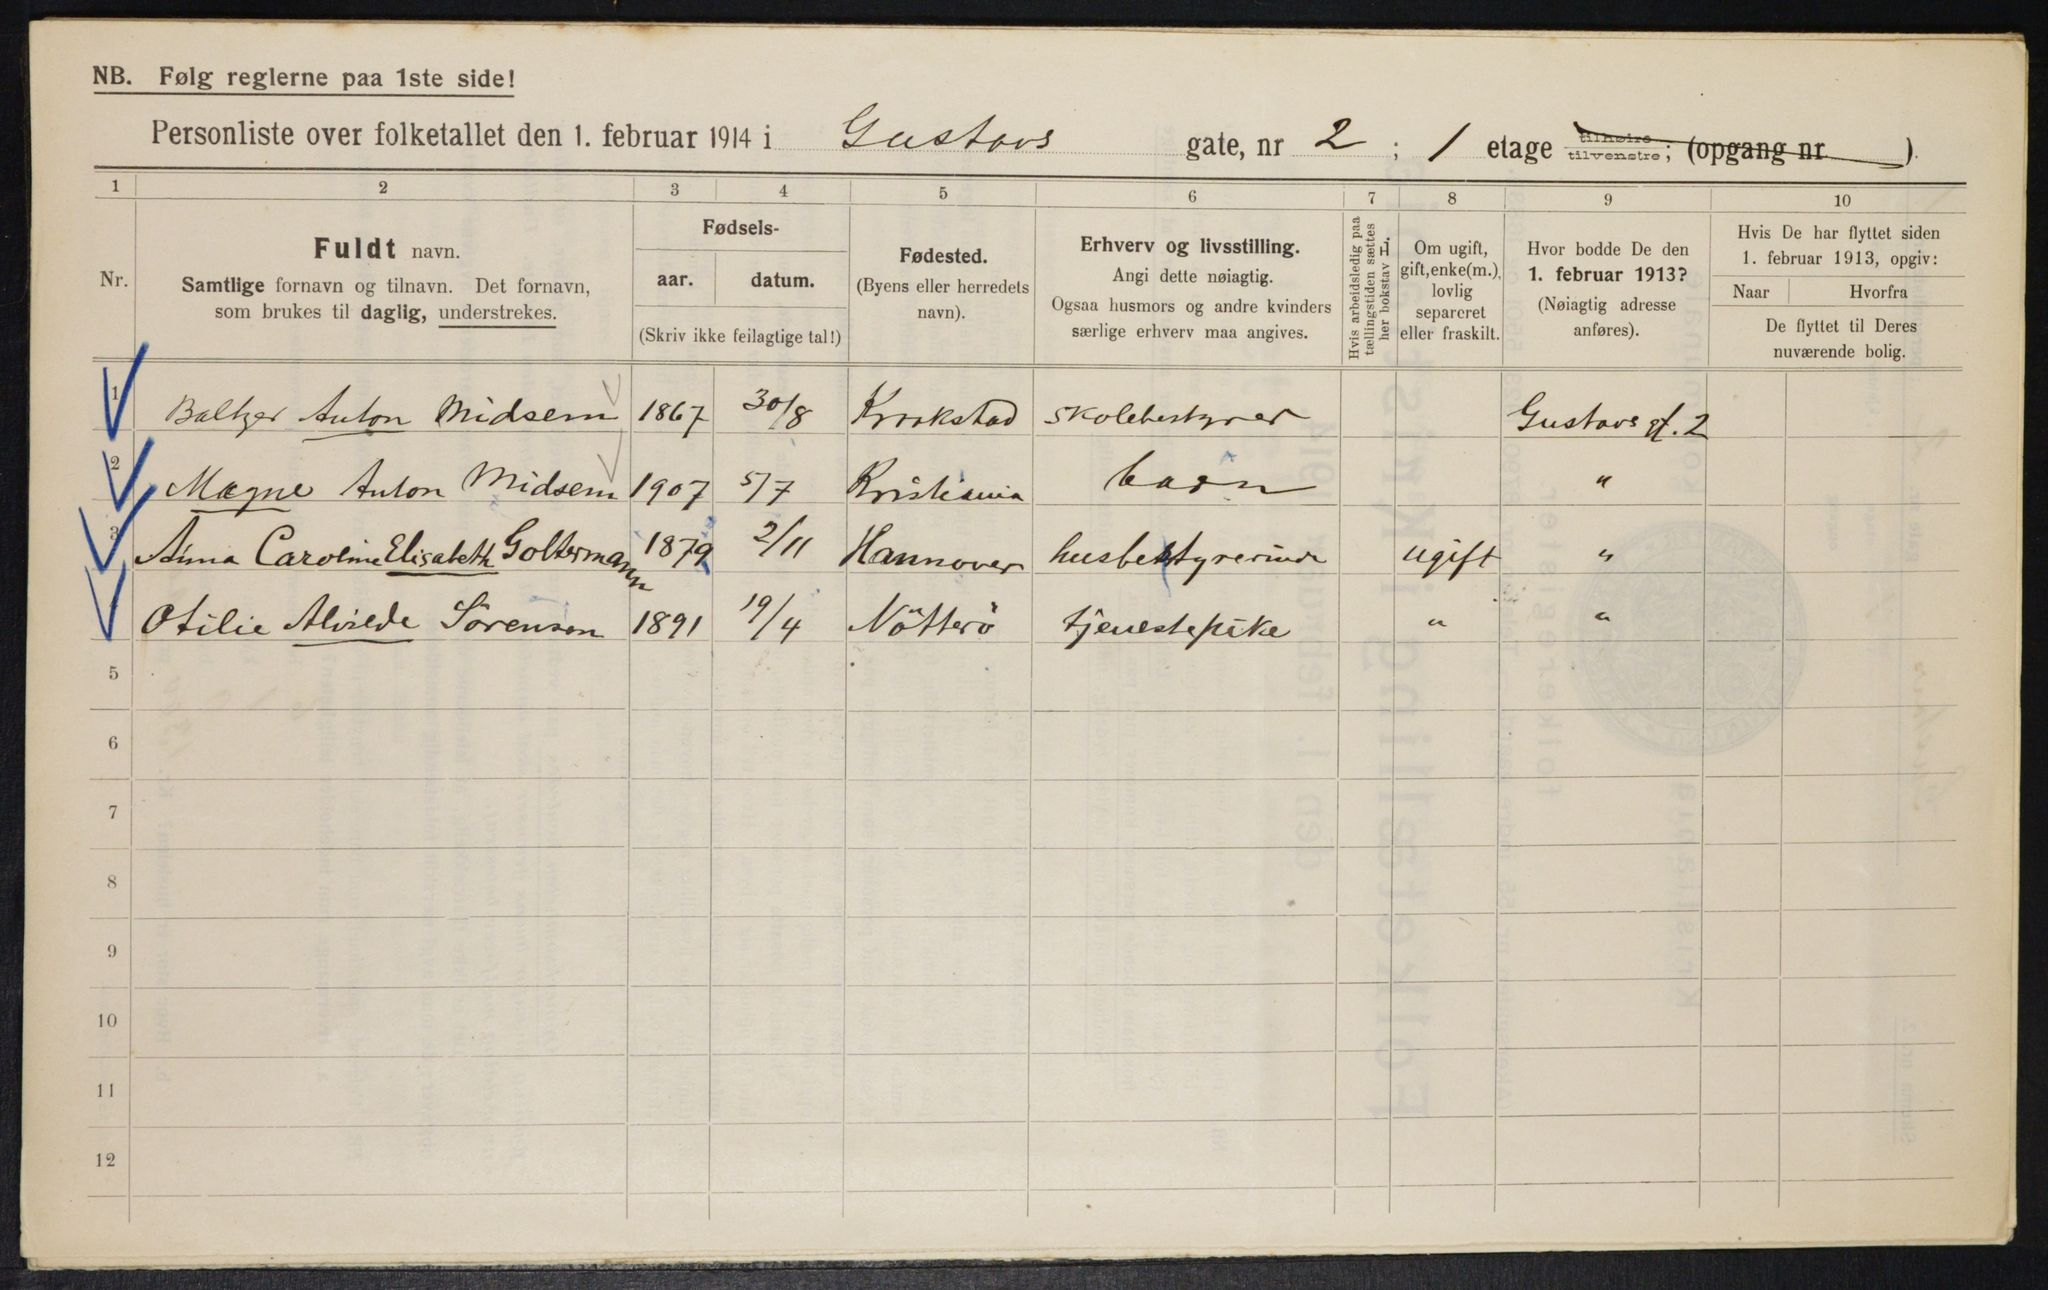 NB. Følg reglerne paa 1ste side!
Personliste over folketallet den 1. februar 1914 i Gustavs gate, nr 2 ; 1 etage tilhøire tilvenstre; (opgang nr ).
1 2 3 4 5 6 7 8 9 10
Nr.
Fuldt navn.
Samtlige fornavn og tilnavn. Det fornavn,
som brukes til daglig, understrekes.
Fødsels-
aar. datum.
(Skriv ikke feilagtige tal!)
Fødested.
(Byens eller herredets
navn).
Erhverv og livsstilling.
Angi dette nøiagtig.
Ogsaa husmors og andre kvinders
særlige erhverv maa angives.
Hvis arbeidsledig paa
tællingstiden sættes
her bokstav H.
Om ugift,
gift, enke(m.),
lovlig
separeret
eller fraskilt.
Hvor bodde De den
1. februar 1913?
(Nøiagtig adresse
anføres).
Hvis De har flyttet siden
1. februar 1913, opgiv:
Naar Hvorfra
De flyttet til Deres
nuværende bolig.
1 Baltzer Anton Midsem 1867 30/8 Krokstad skolebestyrer Gustavs gt. 2
2 Magne Anton Midsem 1907 5/7 Kristiania barn "
3 Anna Caroline Elisabeth Goltermann 1879 2/11 Hannover husbestyrerinde ugift "
Otilie Alvilde Sörensen 1891 19/4 Nötterö tjenestepike " "
5
6
7
8
9
10
11
12